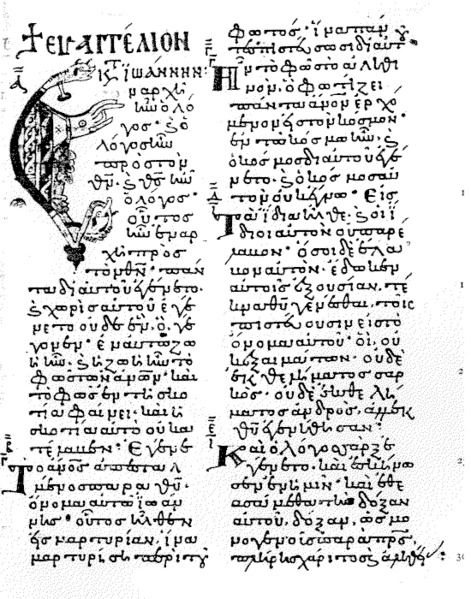 ✝ ΕΥΑΓΓΕΛΙΟΝ
κτ ἰωάννην:
Ἐν ἀρχῆ
ἦν ὁ λό
γος· ϗ ὁ
λόγος ἦν
πρὸς τὸν
θν· ϗ θς ἦν
ὁ λόγος·
οὗτος
ἦν ἐν αρ
χῆ πρὸς
τὸν θν· πάν
τα δι αυτοῦ ἐγένετο·
ϗ χωρὶς αὐτοῦ ἐγέ
νετο οὐδὲ ἓν, ὃ γέ
γονεν· ἐν αὐτῶ ζω
ὴ ἦν· ϗ ἡ ζωὴ ἦν τὸ
φῶς τῶν ἀνων· καὶ
τὸ φῶς ἐν τῆ σκο
τία φαίνει· καὶ ἡ
σκοτία αυτὸ οὐ κα
τέλαβεν· Ἐγένε
Το ἄνος ἀπεσταλ
μένος παρὰ θυ·
ὄνομα αυτῶ ἰωάν
νης· οὗτος ἦλθεν
εἰς μαρτυρίαν, ἵνα
μαρτυρήση περὶ τοῦ
φωτός· ἵνα πάν
τες πιστεύσωσι δι αυτοῦ
Ην τὸ φῶς τὸ ἀληθι
νὸν, ὃ φωτίζει
πάντα ἄνον ἐρχό
μενον εἰς τὸν κόσμον·
ἐν τῶ κόσμω ἦν· ϗ
ὁ κόσμος δι αυτοῦ ἐγέ
νετο· ϗ ὁ κόσμος αυ
τὸν οὐκ ἔγνω· Εἰς
Τὰ ἴδια ἦλθε· ϗ οἱ ἴ
διοι αυτὸν οὐ παρέ
λαβον· ὅσοι δὲ ἔλα
βον αυτὸν· ἔδωκεν
αὐτοῖς ἐξουσίαν, τέ
κνα θυ γενέσθαι, τοῖς
πιστεύουσιν εἰς τὸ
ὄνομα αυτοῦ· οἳ, οὐ
κ ἐξ αἱμάτων· οὐδὲ
ἐκ θελήματος σαρ
κὸς· οὐδὲ ἐκ θελή
ματος ἀνδρὸς, ἀλλ ἐκ
θυ ἐγεννήθησαν·
Καὶ ὁ λόγος σὰρξ ἐ
γένετο· καὶ ἐσκήνω
σεν ἐν ἡμῖν· καὶ ἐθε
ασάμεθα τὴν δόξαν
αυτοῦ, δόξαν, ὡς μο
νογενοῦς παρὰ πρς,
πλήρης χάριτος ϗ ἀληθεί